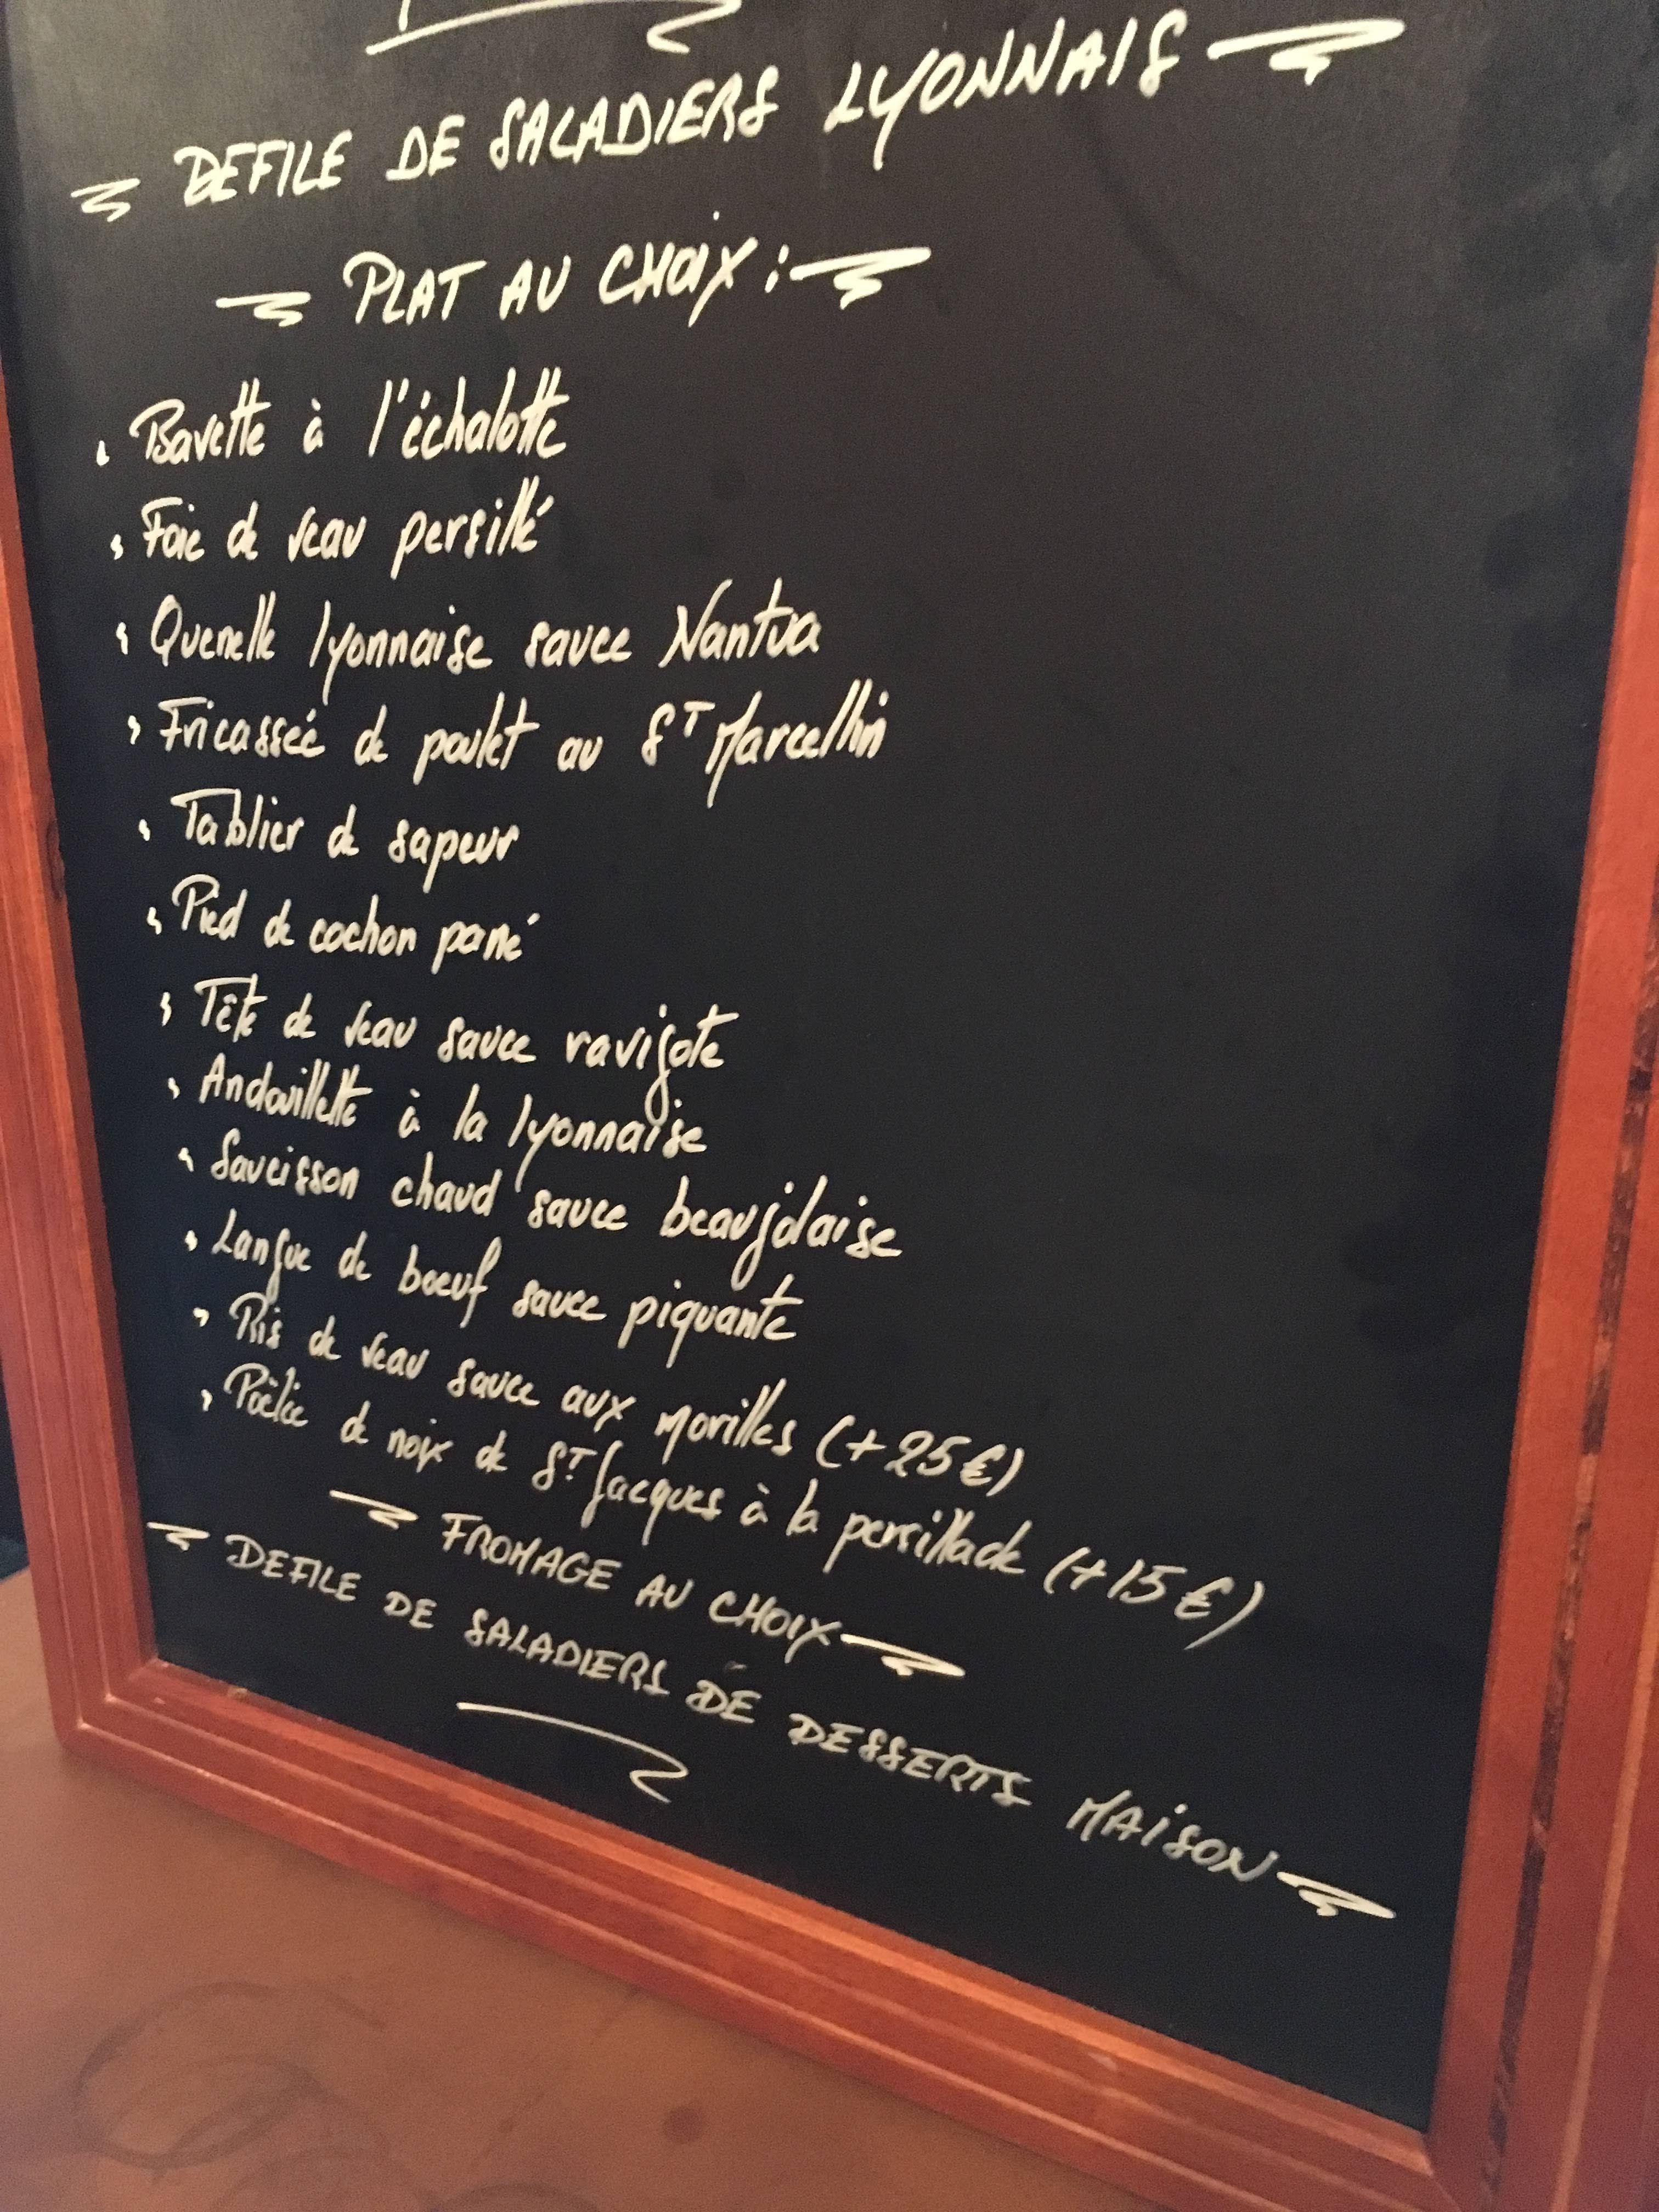 DEFILE DE SALADIERS LYONNAIS
PLAT AU CHOIX :
Bavette à l'échalotte
Foie de veau persillé
Quenelle lyonnaise sauce Nantua
Fricassée de poulet au ST Marcellin
Tablier de sapeur
Pied de cochon pané
Tête de veau sauce ravigote
Andouillette à la lyonnaise
Saucisson chaud sauce beaujolaise
Langue de boeuf sauce piquante
Ris de veau sauce aux morilles (+25€)
Poêlée de noix de ST Jacques à la persillade (+15€)
FROMAGE AU CHOIX
DEFILE DE SALADIERS DE DESSERTS MAISON